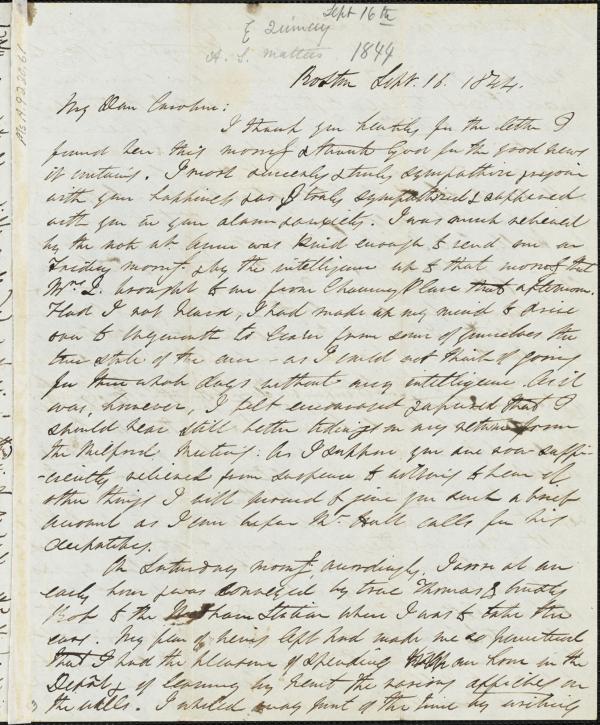 Sept 16th
E Quincy
A. S. Matters 1844
Ms.A.9.2.20.61
Boston Sept. 16. 1844.
My Dear Caroline:
I thank you heartily for the letter I
found here this morng & thank God for the good news
it contains. I most sincerely & truly sympathize & rejoice
with you in your happiness as I truly sympathized & suffered
with you in your alarm & anxiety. I was much relieved
by the note that Anne was kind enough to send me on
Friday morng. & by the intelligence up to that morng that
Mrs Q. brought to me from Chauncy Place that afternoon.
Had I not heard, I had made up my mind to drive
over to Weymouth to learn from some of yourselves the
true state of the case - as I could not think of going
for three whole days without any intelligence. As it
was, however, I felt encouraged & assured that I
should hear still better tidings on my return from
the Milford Meeting. As I suppose you are now suffi-
-ciently relieved from suspense to be willing to hear of
other things I will proceed to give you such a brief
account as I can before Mr Hall calls for his
despatches.
On Saturday morng, accordingly, I arose at an
early hour & was conveyed by true Thomas & trusty
Bob to the Station where I was to take the
cars. My plan of being left had made me so punctual
that I had the pleasure of spending an hour in the
Depôt & of learning by heart the various affiches on
the walls. I whiled away most of the time by writing